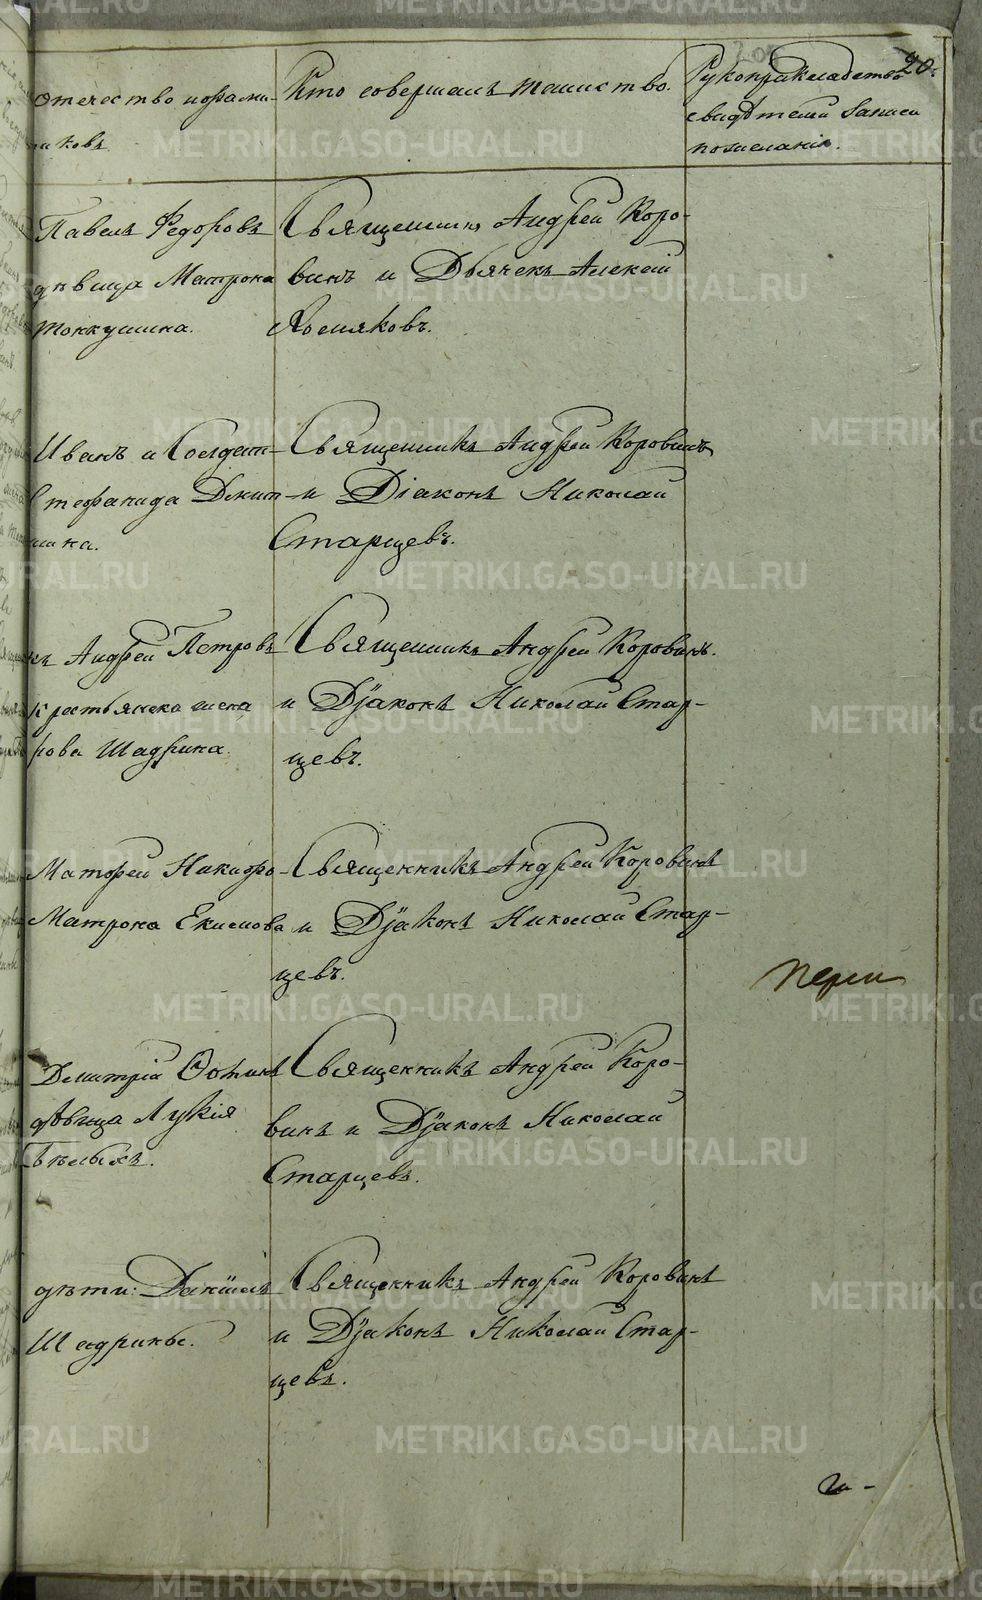 отечество и фами-
ліковъ
Кто совершалъ таинство.
Рукоприкладство
свидѣтелей записи
пожеланію.
20.
Павелъ Федоровъ
дѣвица Матрона
Священникъ Андрей Коро-
винъ и Дьячекъ Алексій
Иванъ и Солдат-
Стефанида Дмит-
Священникъ Андрей Коровинъ
и Діаконъ Николай
Старцевъ.
къ Андрей Петровъ
крестьянска жена
рова Шадрина.
Священникъ Андрей Коровинъ.
и Діаконъ Николай Стар-
цевъ.
Матфей Никифо-
Матрона Екимова
Священникъ Андрей Коровинъ
и Діаконъ Николай Стар-
цевъ.
Дмитрій Фотинъ
дѣвица Лукія
Бѣлыхъ.
Священникъ Андрей Коро-
винъ и Діаконъ Николай
Старцевъ.
дѣти: Даніилъ
Шадрины.
Священникъ Андрей Коровинъ
и Діаконъ Николай Стар-
цевъ.
METRIKI.GASO-URAL.RU